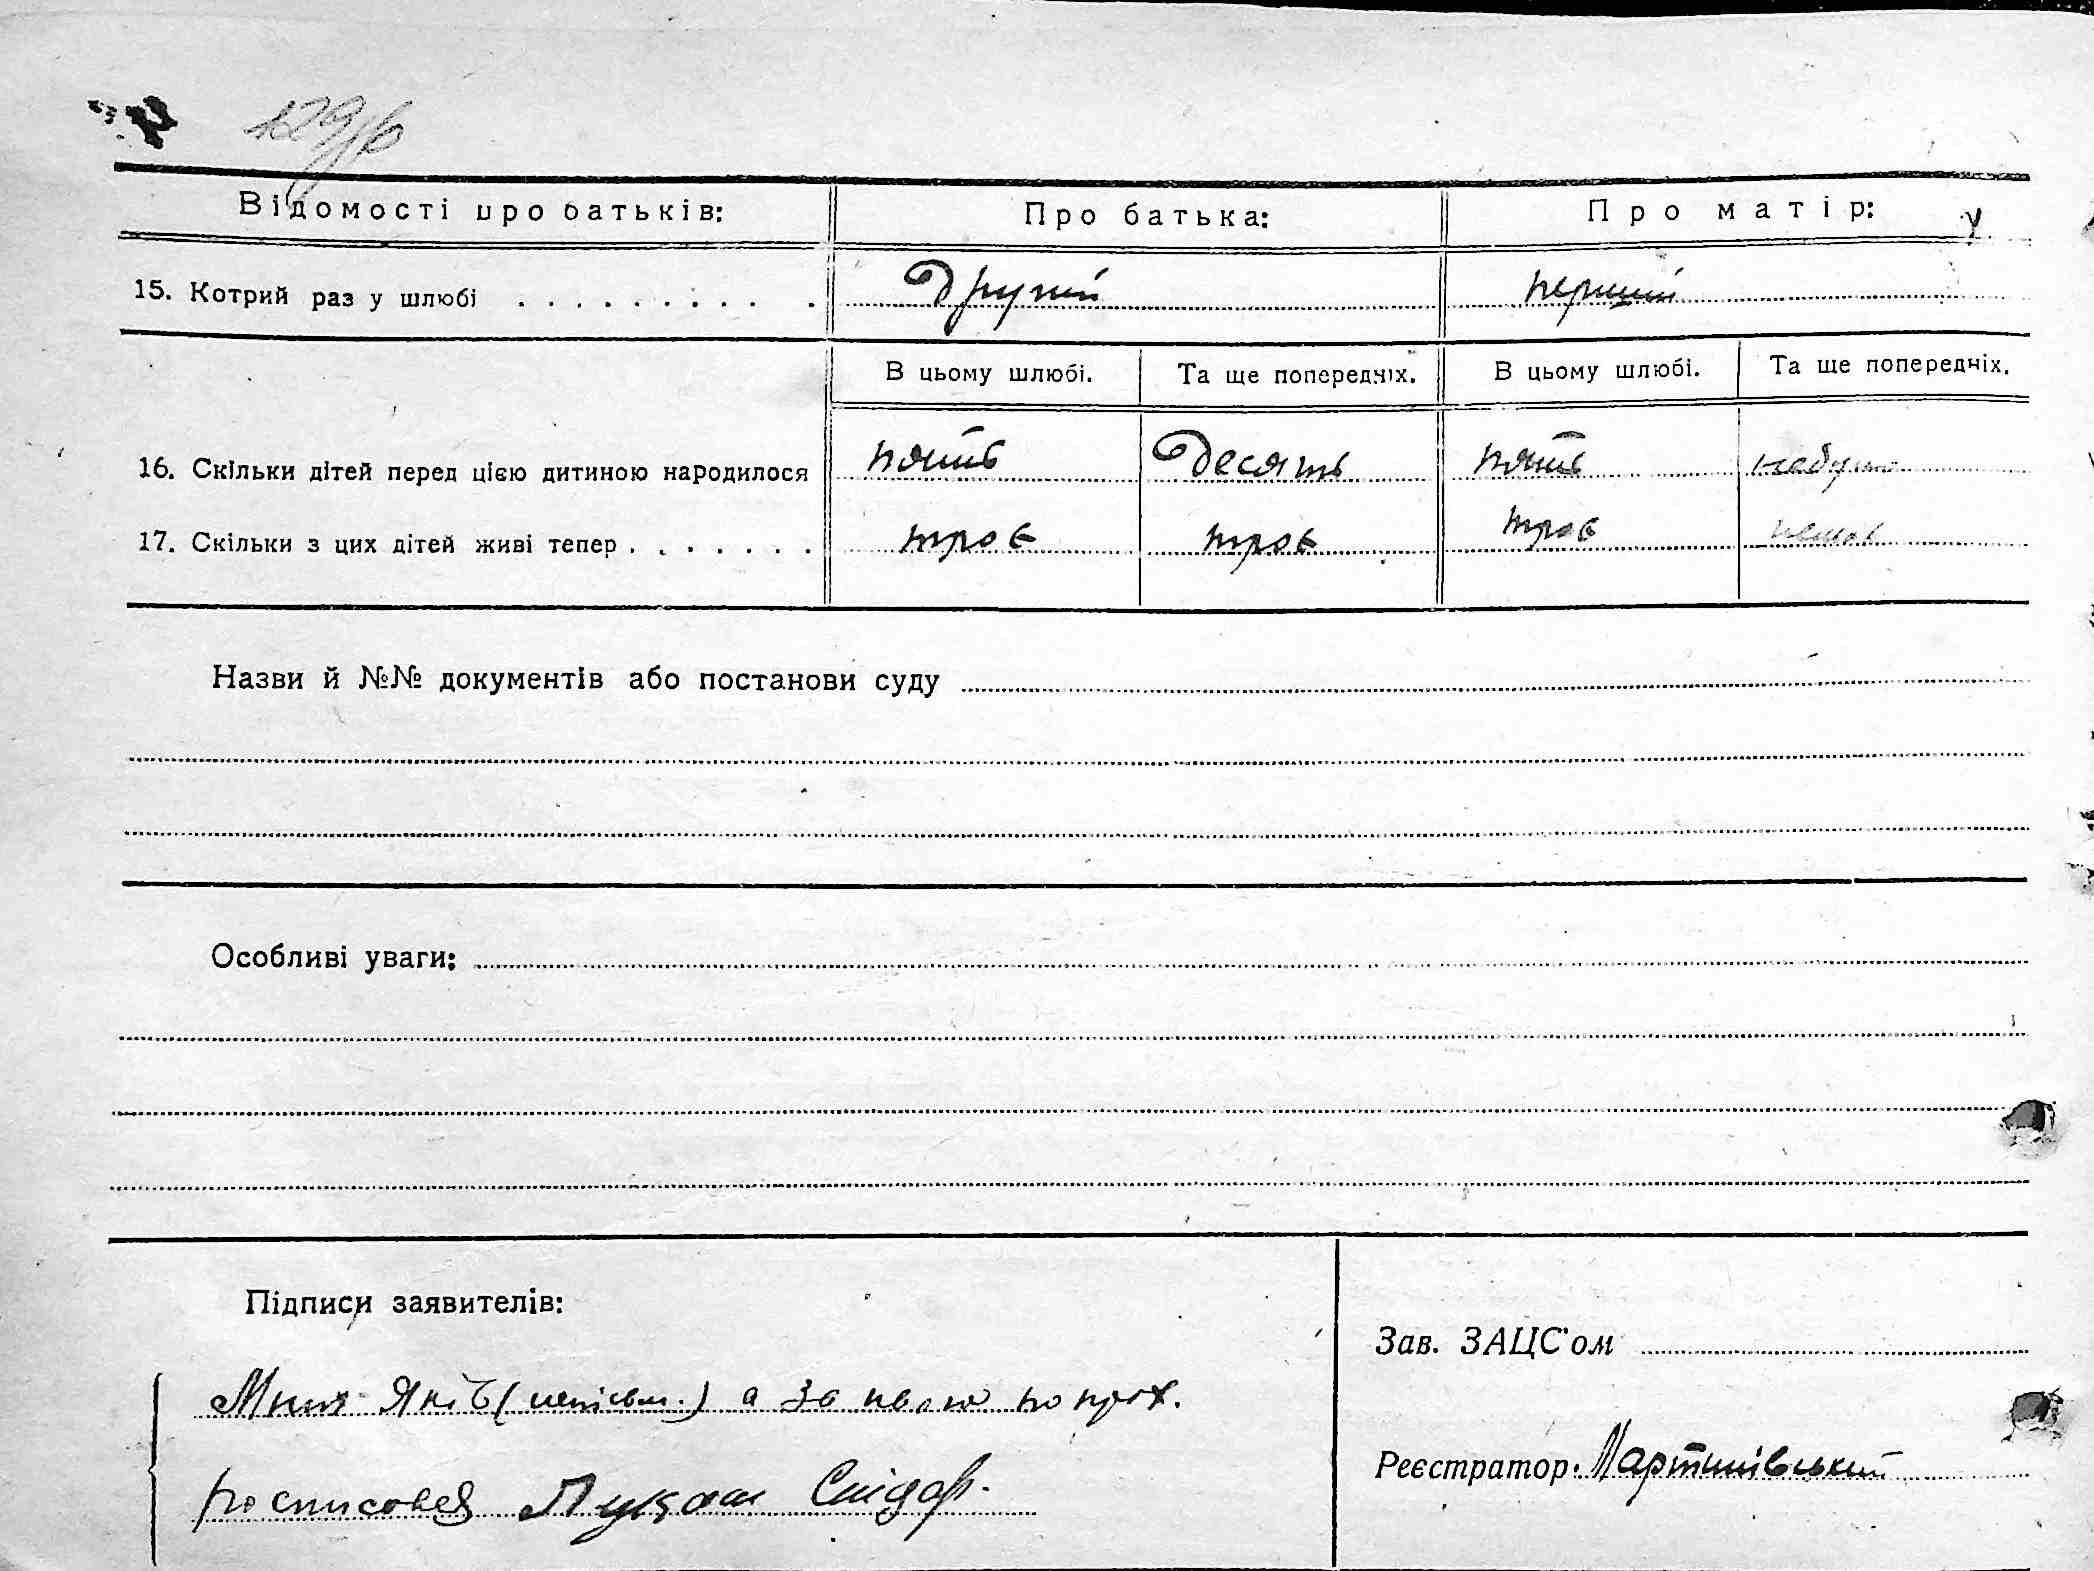 129
Відомості про батьків: Про батька: Про матір:
15. Котрий раз у шлюбі другий перший
В цьому шлюбі. Та ще попередніх. В цьому шлюбі. Та ще попередніх.
16. Скільки дітей перед цією дитиною народилося пять десять пять небуло
17. Скільки з цих дітей живі тепер троє троє троє немає
Назви й №№ документів або постанови суду
Особливі уваги:
Підписи заявителів:
Зав. ЗАЦС'ом
Яків (неписьм.) а за нього по прох.
Реєстратор Мартинівський
росписовся Лукаш Сидор.